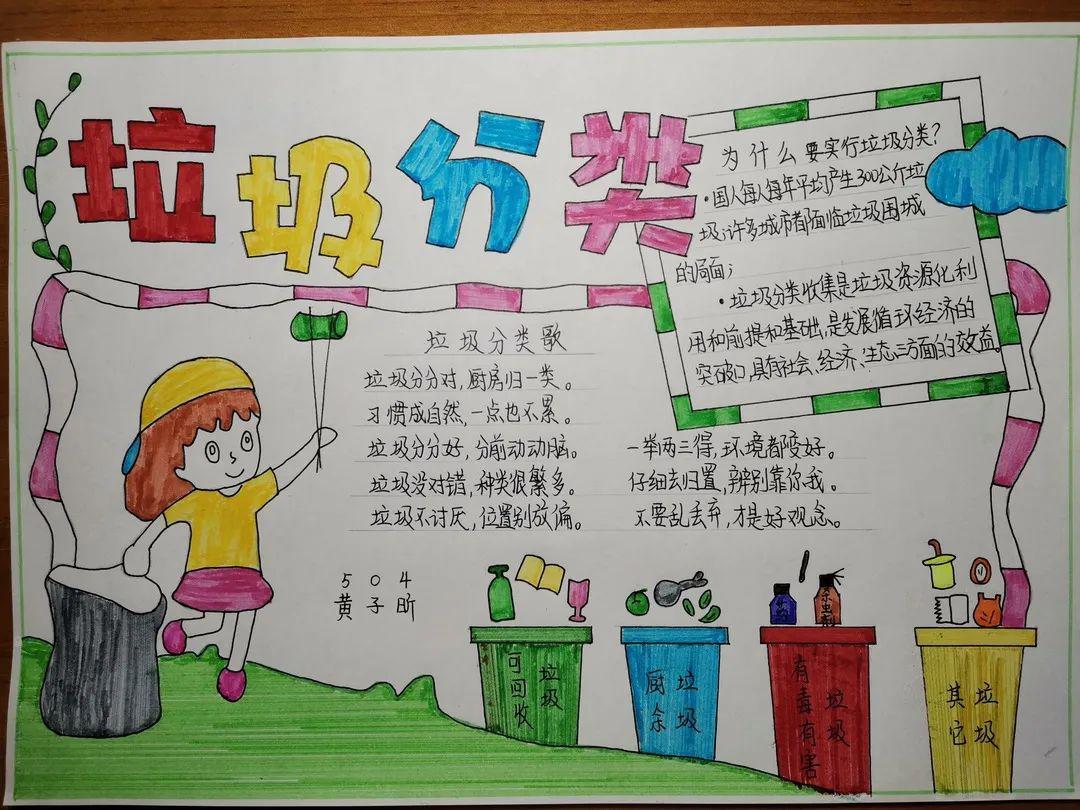 垃圾分类
为什么要实行垃圾分类?
·国人每人每年平均产生300公斤垃
圾;许多城市都面临垃圾围城
的局面;
·垃圾分类收集是垃圾资源化利
用和前提和基础,是发展循环经济的
突破口,具有社会、经济、生态三方面的效益。
垃圾分类歌
垃圾分分对,厨房归一类。
习惯成自然,一点也不累。
垃圾分分好,分前动动脑。
垃圾没对错,种类很繁多。
垃圾不讨厌,位置别放偏。
一举两三得,环境都变好。
仔细去归置,辨别靠你我。
不要乱丢弃,才是好观念。
504
黄子昕
杀虫剂
可回收
垃圾
厨余
垃圾
有毒有害
垃圾
其它
垃圾